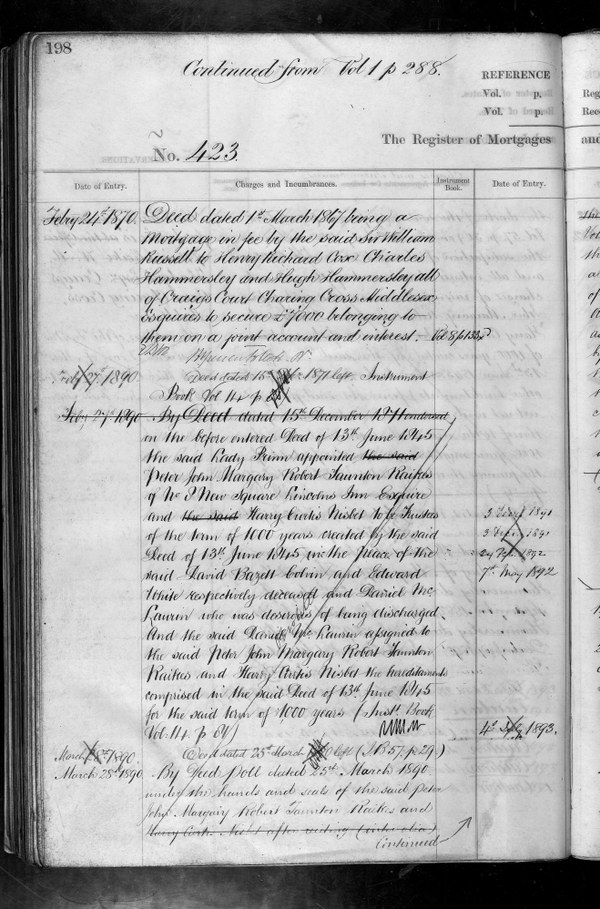 198
Continued from Vol 1 p 288.
REFERENCE
Vol. p.
Vol. p.
No. 423.
The Register of Mortgages
and
Date of Entry.
Charges and Incumbrances.
Instrument Book.
Date of Entry.
Febry 24th 1870.
Deed dated 1st March 1867 being a
Mortgage in fee by the said Sir William
Russell to Henry Richard Cox Charles
Hammersley and Hugh Hammersley all
of Craigs Court Charing Cross Middlesex
Esquires to secure £7000 belonging to
them on a joint account and interest.
Vol 8 p 133
Feby 27 1890
Deed dated 15th 1871 left. Instrument
Book Vol 14 p
Feby 27 1890
By Deed dated 15th December 1871 endorsed
on the before entered Deed of 13th June 1845
the said Lady Prinn appointed the said
Peter John Margary Robert Taunton Raikes
of No 8 New Square Lincolns Inn Esquire
and the said Harry Curtis Nisbet to be Trustees
of the term of 1000 years created by the said
Deed of 13th June 1845 in the place of the
said David Bazett Colvin and Edward
White respectively deceased and Daniel Mc
Laurin who was desirous of being discharged
And the said Daniel Mc Laurin assigned to
the said Peter John Margary Robert Taunton
Raikes and Harry Curtis Nisbet the hereditaments
comprised in the said Deed of 13th June 1845
for the said term of 1000 years (Inst. Book
Vol. 14. p 84)
1891
1891
1892
7th May 1892
4th 1893.
March 1890
Deed dated 25th March left (p 29.)
March 28th 1890
By Deed Poll dated 25th March 1890
under the hands and seals of the said Peter
John Margary Robert Taunton Raikes and
Harry Curtis Nisbet after reciting (inter alia)
Continued